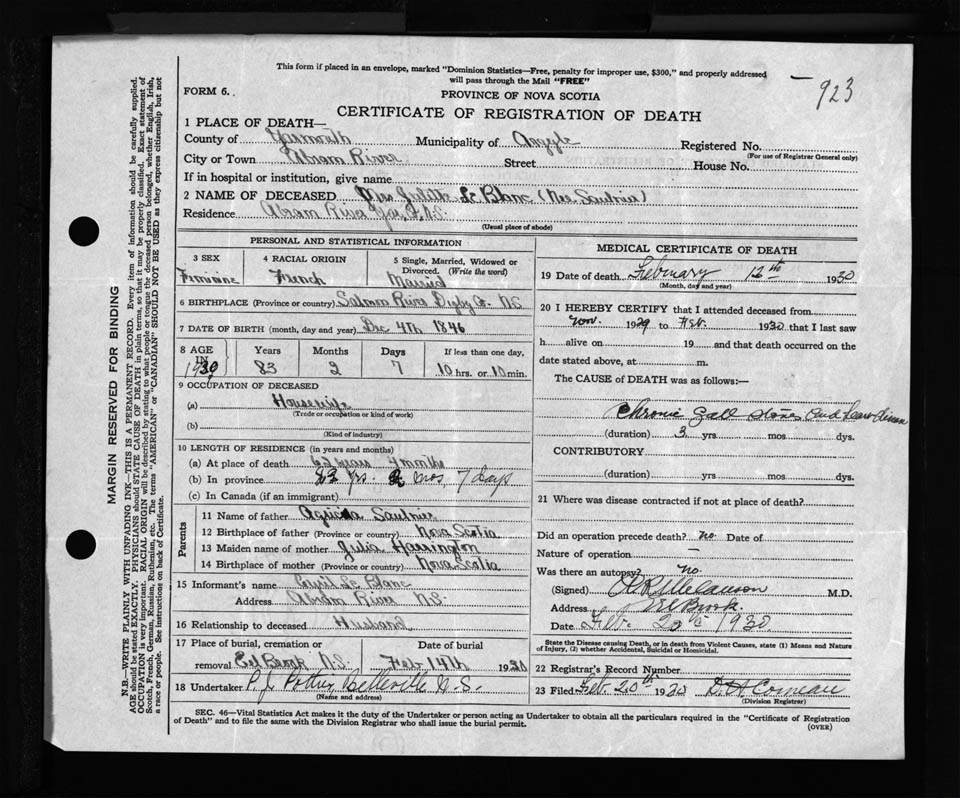 This form if placed in an envelope, marked "Dominion Statistics—Free, penalty for improper use, $300," and properly addressed
will pass through the Mail "FREE"
923
FORM 6.
PROVINCE OF NOVA SCOTIA
CERTIFICATE OF REGISTRATION OF DEATH
1 PLACE OF DEATH—
County of Yarmouth Municipality of Argyle Registered No.
(For use of Registrar General only)
City or Town Abram River Street House No.
If in hospital or institution, give name
2 NAME OF DECEASED Mrs Le Blanc (Nee Saulnier)
Residence Abram River Yar. N.S.
(Usual place of abode)
PERSONAL AND STATISTICAL INFORMATION
3 SEX 4 RACIAL ORIGIN 5 Single, Married, Widowed or
Divorced. (Write the word)
Feminine French Married
6 BIRTHPLACE (Province or country) Salmon River Digby Co. N.S
7 DATE OF BIRTH (month, day and year) Dec 4th 1846
8 AGE IN 1930 Years Months Days If less than one day,
83 2 7 10 hrs. or 10 min.
9 OCCUPATION OF DECEASED
(a) Housewife
(Trade or occupation or kind of work)
(b)
(Kind of industry)
10 LENGTH OF RESIDENCE (in years and months)
(a) At place of death 62 years months
(b) In province 83 yrs. 2 mos 7 days
(c) In Canada (if an immigrant)
Parents
11 Name of father Saulnier
12 Birthplace of father (Province or country) Nova Scotia
13 Maiden name of mother Julia Harrington
14 Birthplace of mother (Province or country) Nova Scotia
15 Informant's name Le Blanc
Address Abram River N.S.
16 Relationship to deceased Husband
17 Place of burial, cremation or Date of burial
removal Eel Brook N.S. Feb 14th 1930
18 Undertaker P. J. Pottier Belleville N.S.
(Name and address)
MEDICAL CERTIFICATE OF DEATH
19 Date of death February 12th 1930
(Month, day and year)
20 I HEREBY CERTIFY that I attended deceased from
Nov. 1929 to Feb. 1930 that I last saw
h alive on 19 and that death occurred on the
date stated above, at m.
The CAUSE of DEATH was as follows:—
Chronic gall stones and
(duration) 3 yrs mos dys.
CONTRIBUTORY
(duration) yrs mos dys.
21 Where was disease contracted if not at place of death?
Did an operation precede death? no Date of
Nature of operation —
Was there an autopsy? no.
(Signed) Melanson M.D.
Address Eel Brook.
Date Feb. 1930
State the Disease causing Death, or in death from Violent Causes, state (1) Means and Nature
of Injury, (2) whether Accidental, Suicidal or Homicidal.
22 Registrar's Record Number
23 Filed Feb. 20th 1930 Comeau
(Division Registrar)
SEC. 46—Vital Statistics Act makes it the duty of the Undertaker or person acting as Undertaker to obtain all the particulars required in the "Certificate of Registration
of Death" and to file the same with the Division Registrar who shall issue the burial permit.
(OVER)
MARGIN RESERVED FOR BINDING
N.B.—WRITE PLAINLY WITH UNFADING INK—THIS IS A PERMANENT RECORD. Every item of information should be carefully supplied.
AGE should be stated EXACTLY. PHYSICIANS should STATE CAUSE OF DEATH in plain terms, so that it may be properly classified. Exact statement of
OCCUPATION is very important. RACIAL ORIGIN will be described by stating to what people or tongue the deceased person belonged, whether English, Irish,
Scotch, French, German, Russian, Ruthenian, etc. The terms "AMERICAN" or "CANADIAN" SHOULD NOT BE USED as they express citizenship but not
a race or people. See instructions on back of Certificate.